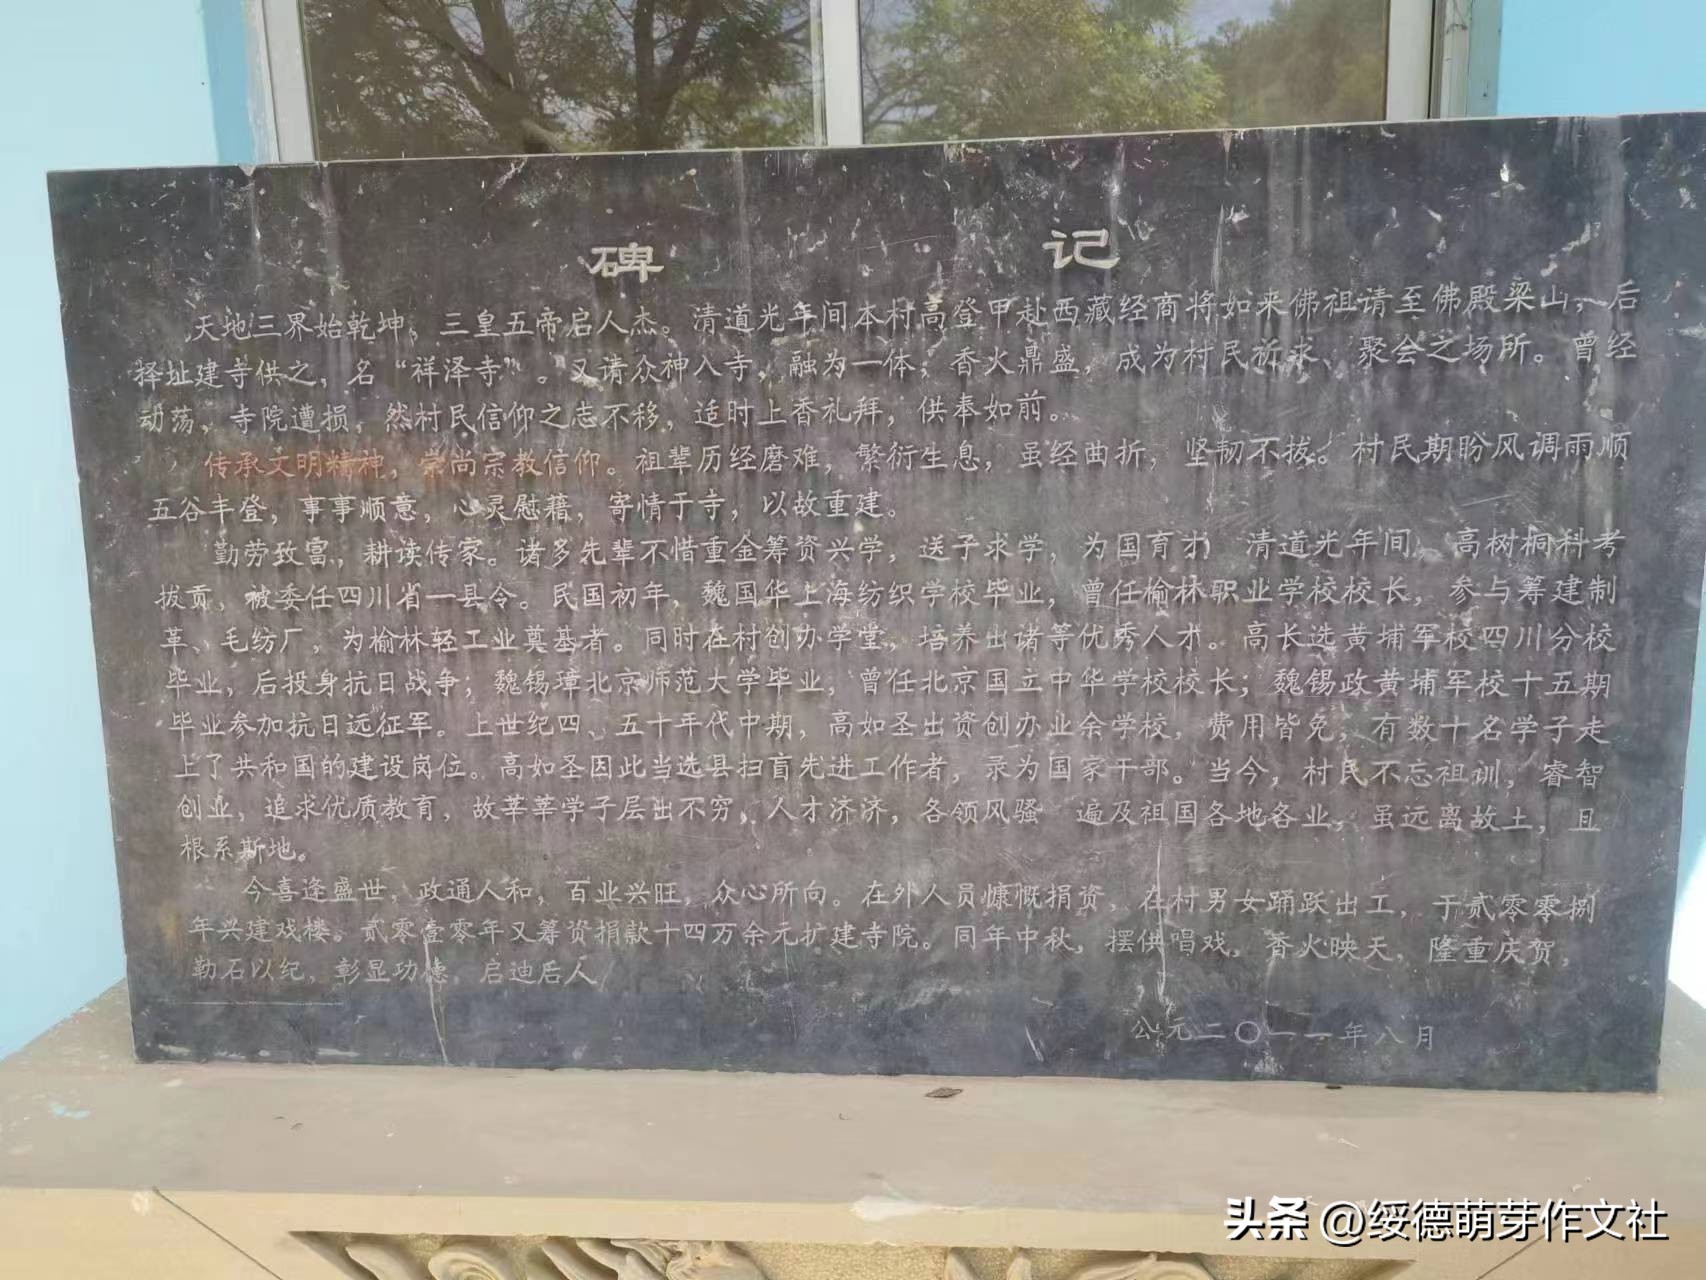 碑记
天地三界始乾坤，三皇五帝启人杰。清道光年间本村高登甲赴西藏经商将如来佛祖请至佛殿梁山，后
择址建寺供之，名“祥泽寺”。又请众神入寺，融为一体，香火鼎盛，成为村民祈求、聚会之场所。曾经
动荡，寺院遭损，然村民信仰之志不移，适时上香礼拜，供奉如前。
传承文明精神，崇尚宗教信仰。祖辈历经磨难，繁衍生息，虽经曲折，坚韧不拔。村民期盼风调雨顺
五谷丰登，事事顺意，心灵慰藉，寄情于寺，以故重建。
勤劳致富，耕读传家。诸多先辈不惜重金筹资兴学，送子求学，为国育才 清道光年间，高树桐科考
拔贡，被委任四川省一县令。民国初年，魏国华上海纺织学校毕业，曾任榆林职业学校校长，参与筹建制
革、毛纺厂，为榆林轻工业奠基者。同时在村创办学堂，培养出诸等优秀人才。高长选黄埔军校四川分校
毕业，后投身抗日战争；魏锡璋北京师范大学毕业，曾任北京国立中华学校校长；魏锡政黄埔军校十五期
毕业参加抗日远征军。上世纪四、五十年代中期，高如圣出资创办业余学校，费用皆免，有数十名学子走
上了共和国的建设岗位。高如圣因此当选县扫盲先进工作者，录为国家干部。当今，村民不忘祖训，睿智
创业，追求优质教育，故莘莘学子层出不穷，人才济济，各领风骚 遍及祖国各地各业，虽远离故土，且
根系斯地。
今喜逢盛世，政通人和，百业兴旺，众心所向。在外人员慷慨捐资，在村男女踊跃出工，于贰零零捌
年兴建戏楼。贰零壹零年又筹资捐款十四万余元扩建寺院。同年中秋，摆供唱戏，香火映天，隆重庆贺，
勒石以纪，彰显功德，启迪后人
公元二〇一一年八月
头条 @绥德萌芽作文社